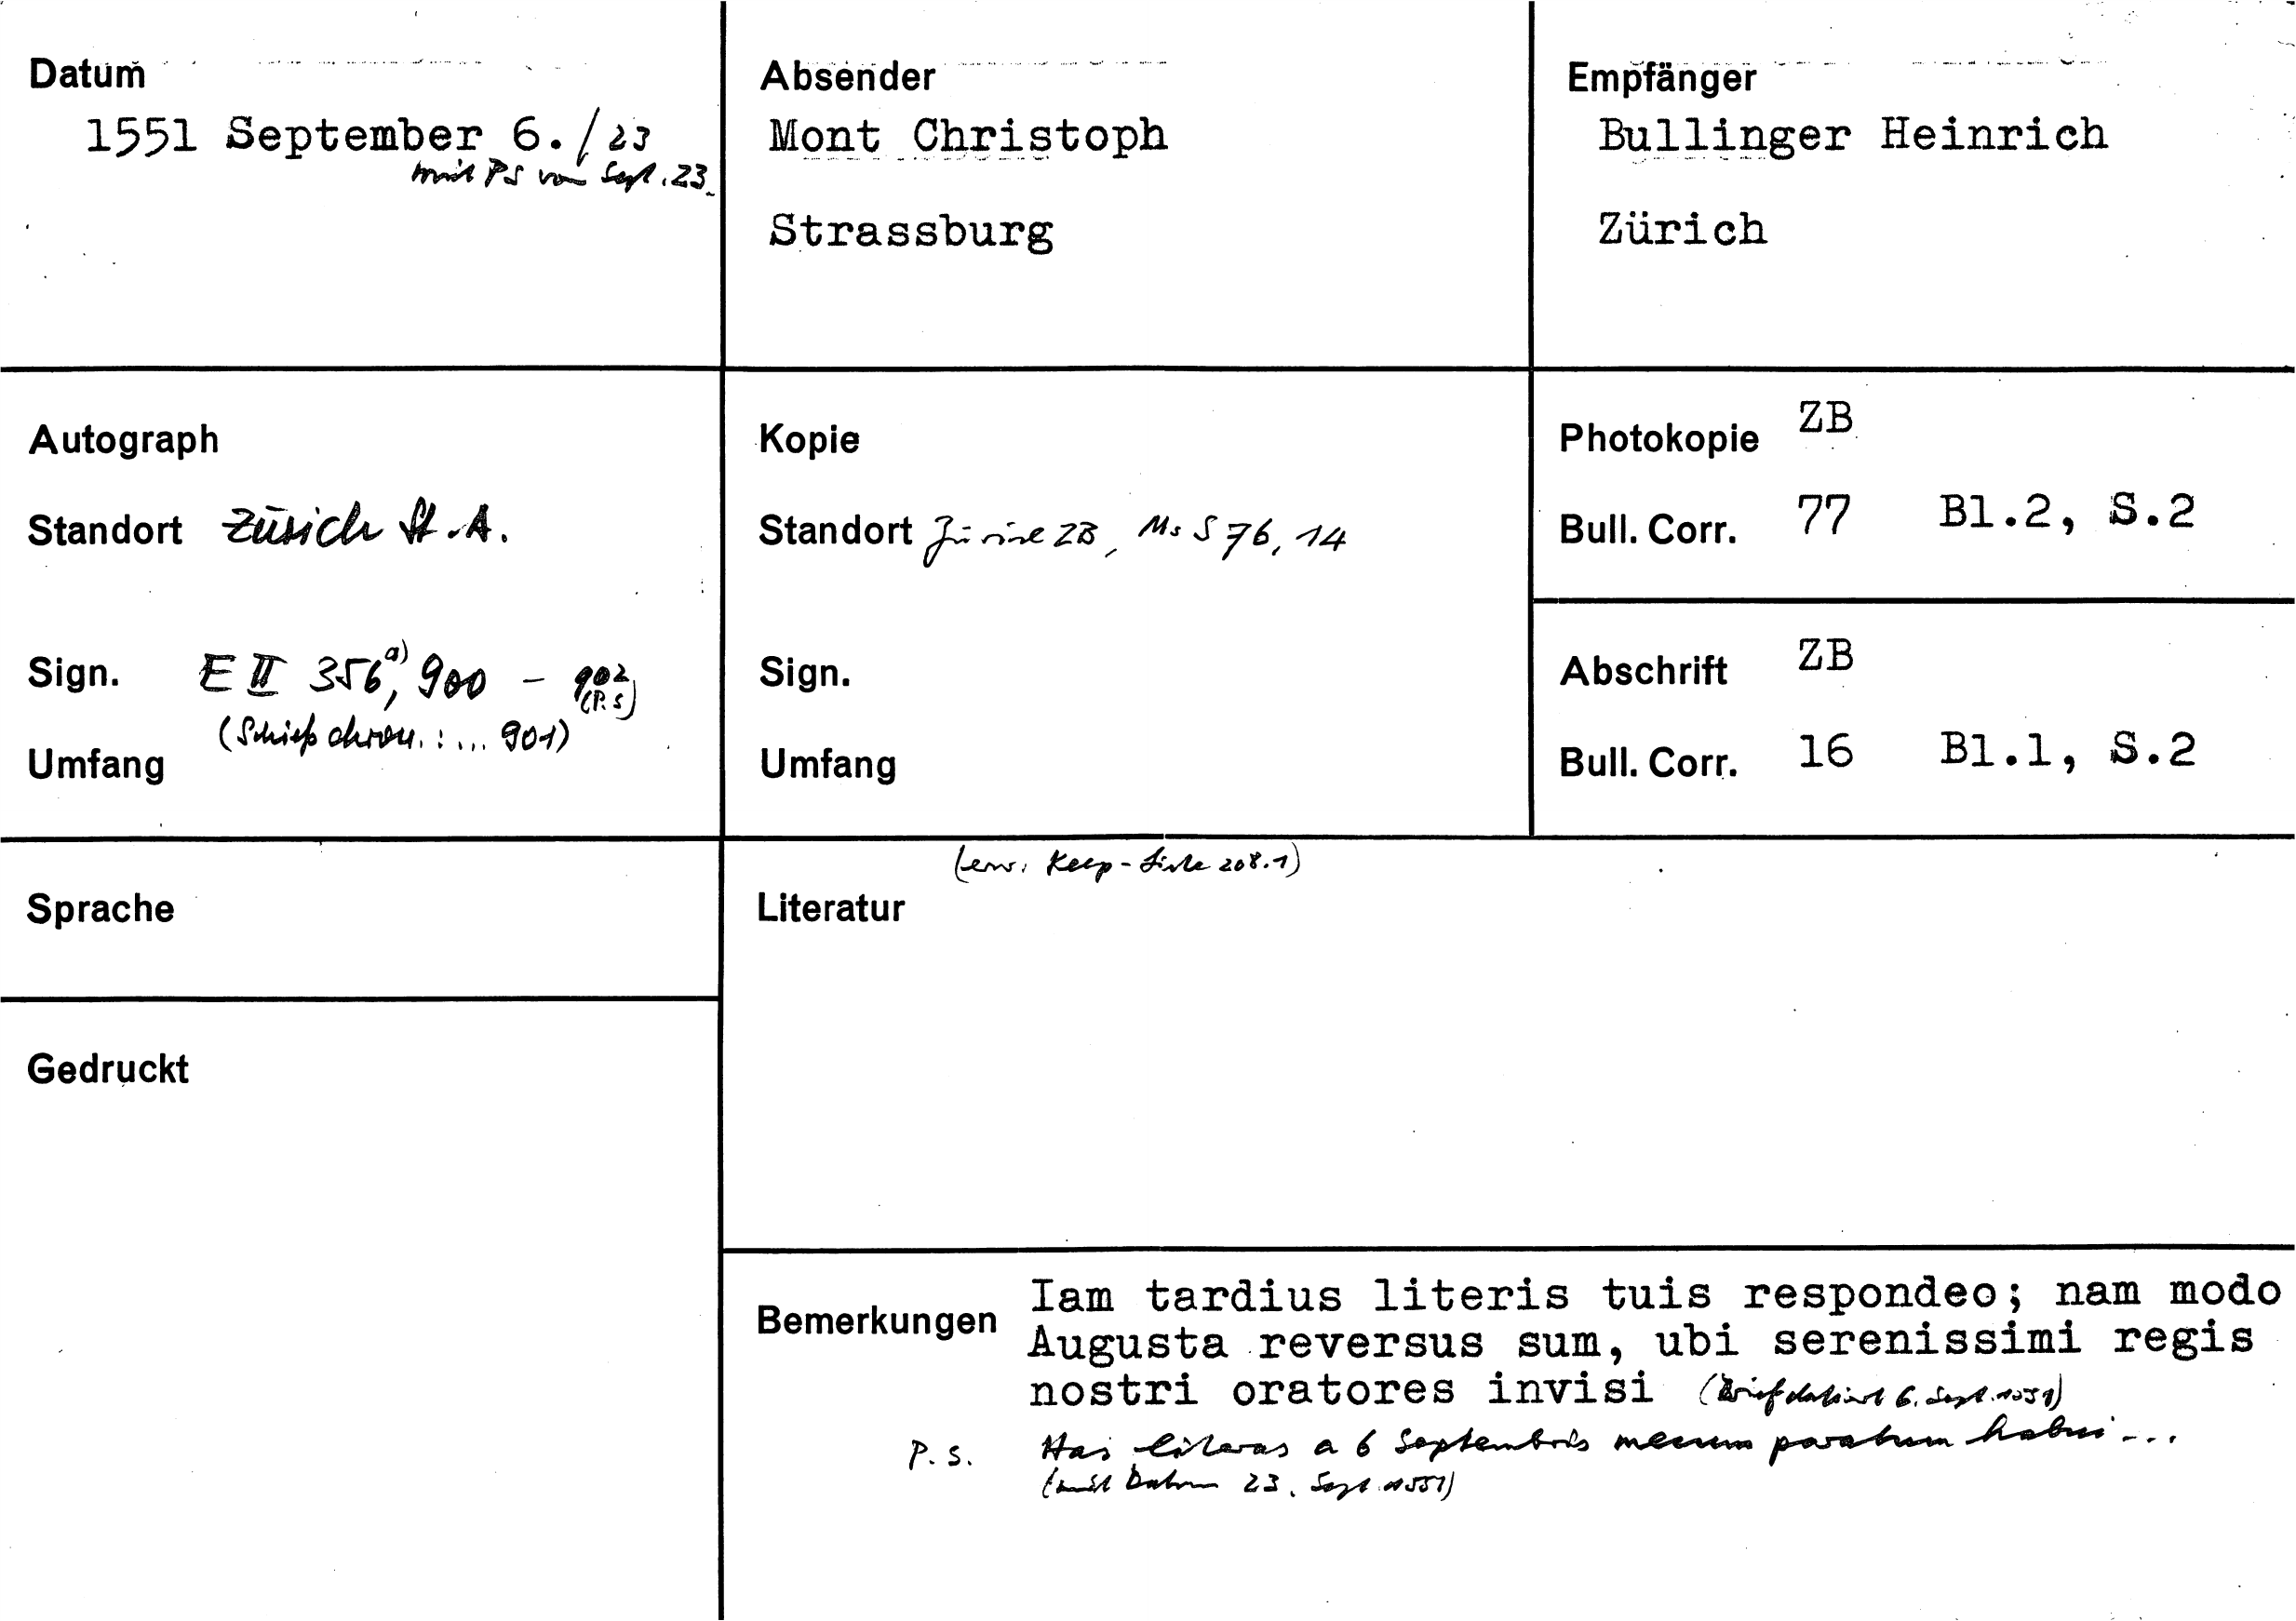 Datum
1551 September 6./23
mit PS von Sept. 23.
Absender
Mont Christoph
Strassburg
Empfänger
Bullinger Heinrich
Zürich
Autograph
Standort Zürich St.A.
Sign. E II 356a), 900 - 902
(P.S)
(Schieß chron.: ... 901)
Umfang
Kopie
Standort Zürich ZB, Ms S 76, 14
Sign.
Umfang
Photokopie ZB
Bull. Corr. 77 Bl.2, S.2
Abschrift ZB
Bull. Corr. 16 Bl.1, S.2
Sprache
Gedruckt
Keep-Liste 208.1)
Literatur
Bemerkungen
Iam tardius literis tuis respondeo; nam modo
Augusta reversus sum, ubi serenissimi regis
nostri oratores invisi (Brief datiert 6. Sept. 1551)
P.S. Has literas a 6 Septembris mecum paratum habui ...
(mit Datum 23. Sept. 1551)